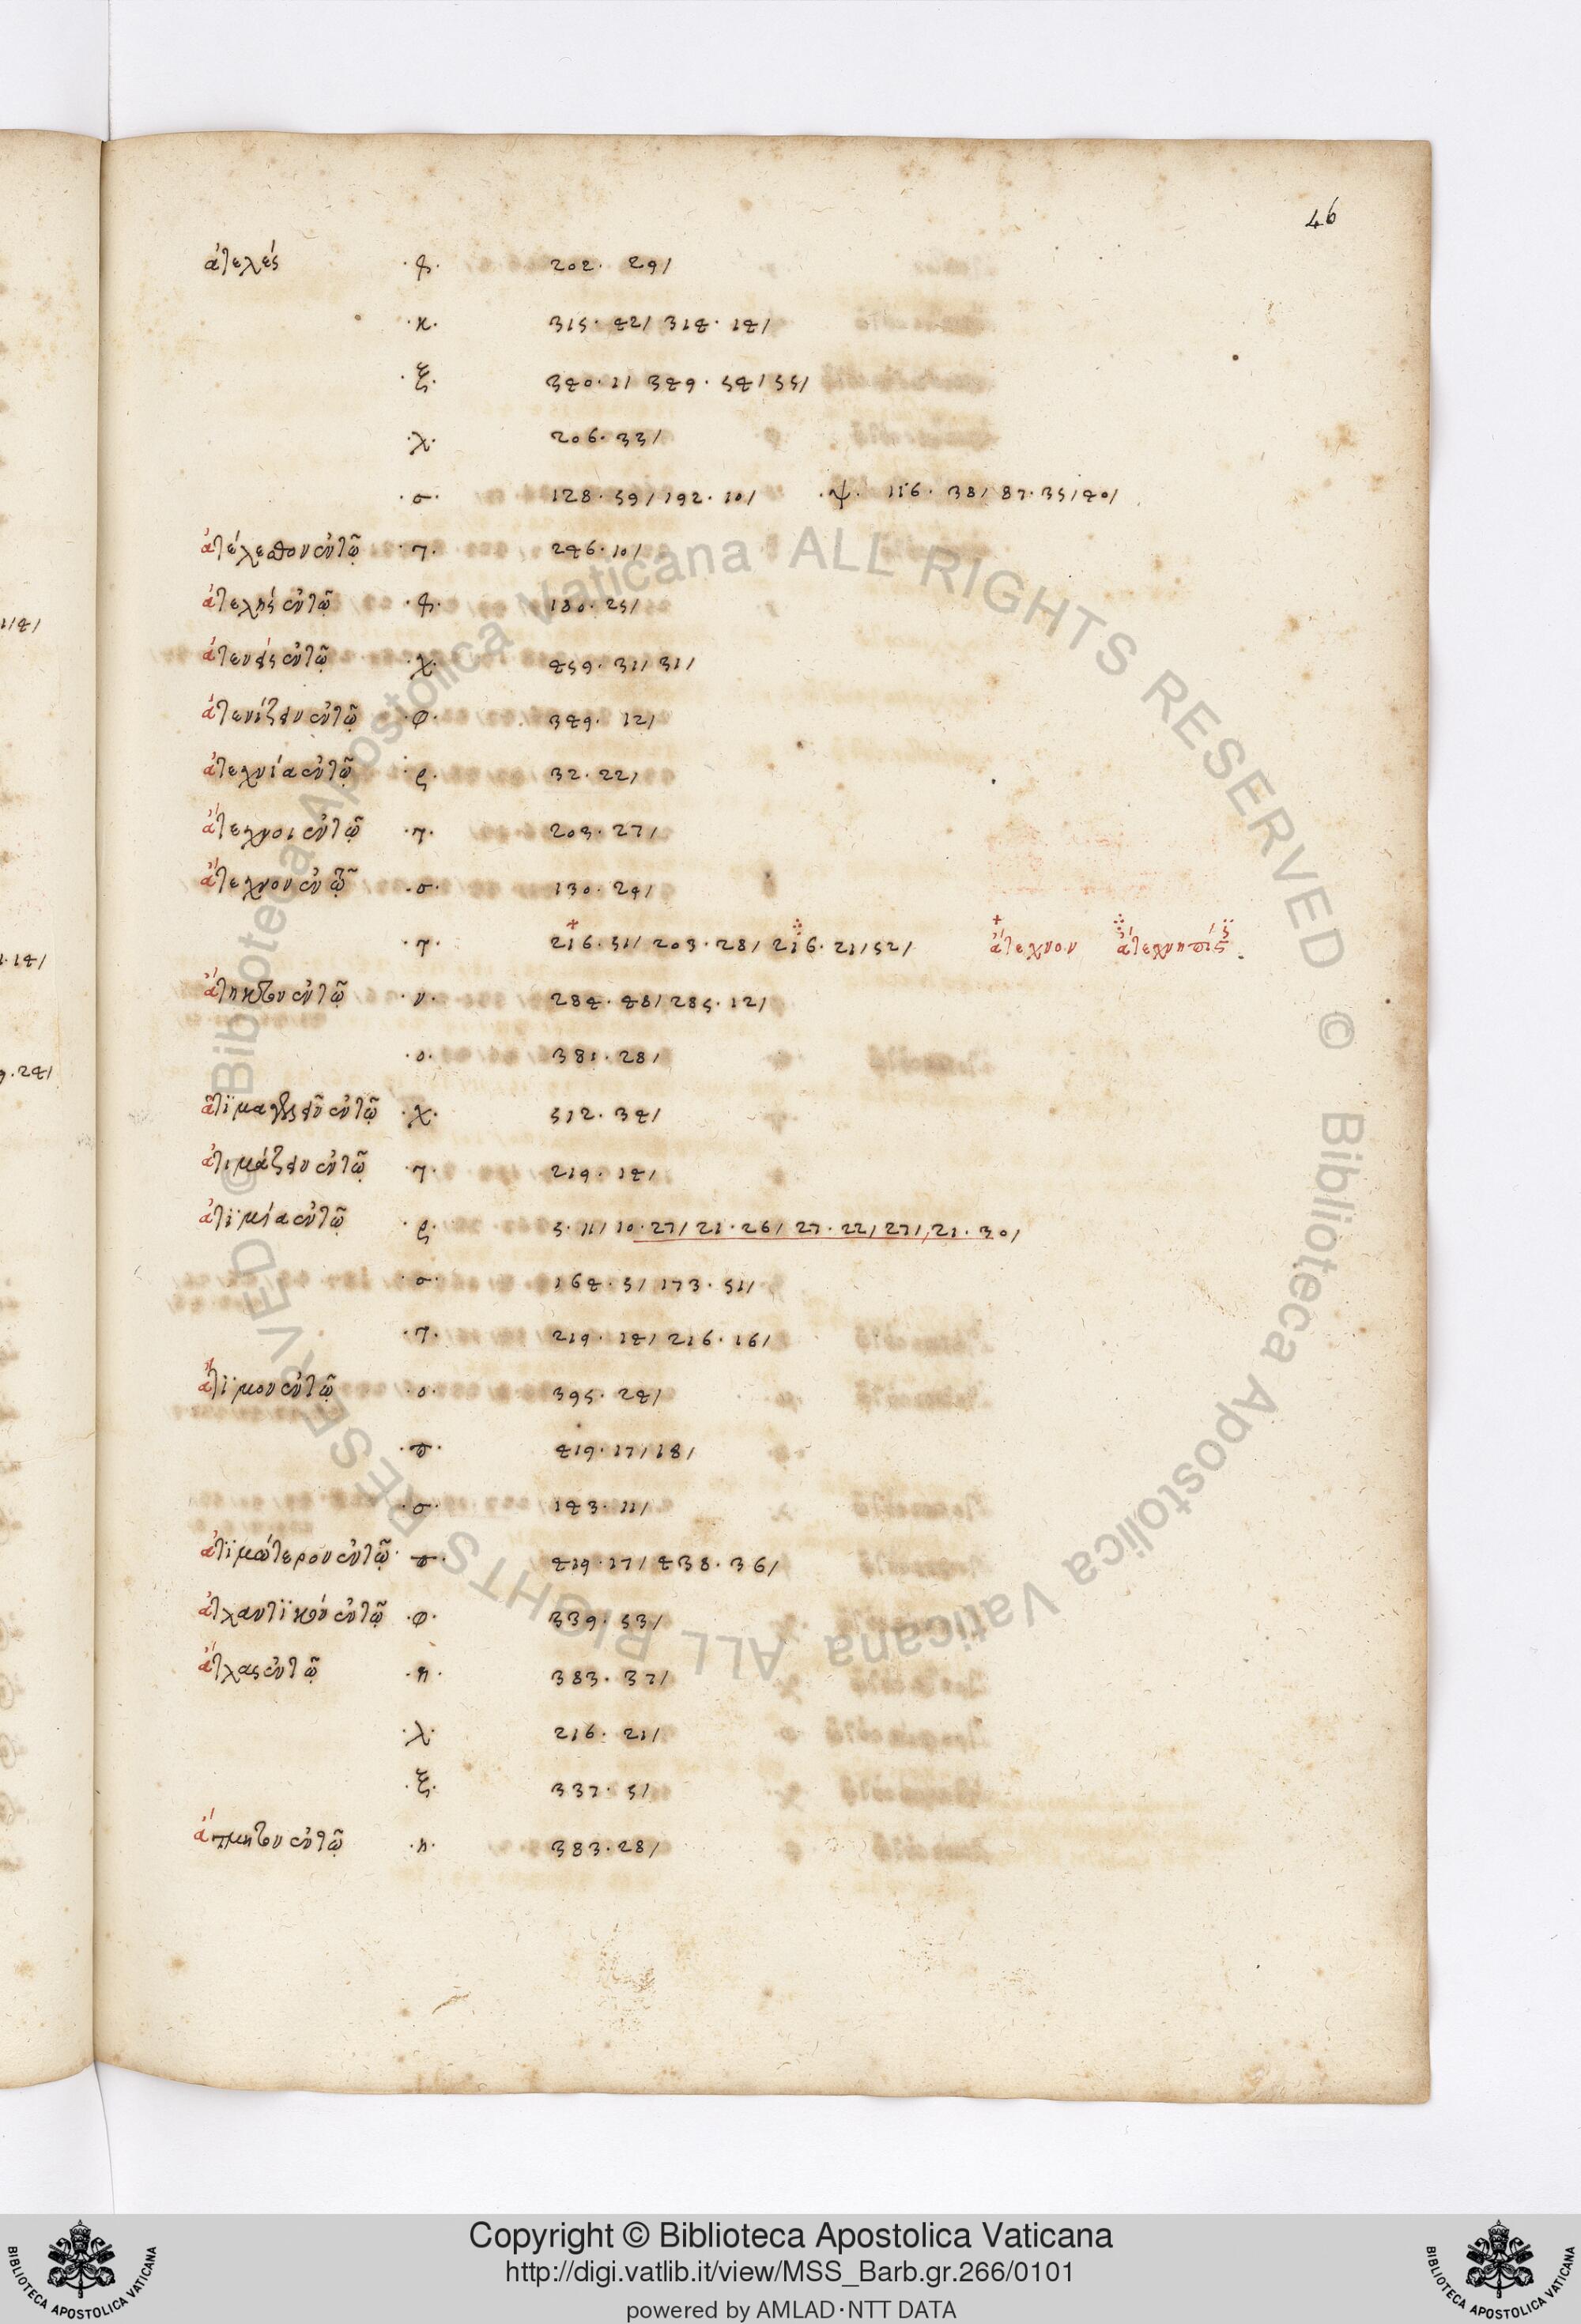 46
ἀτελές ·φ· 202. 29/
·κ· 315. 42/ 314. 14/
·ξ· 340. 11 349. 54/55/
·λ· 206. 33/
·σ· 128. 59/ 192. 10/ ·ψ· 116. 38/ 87. 35/40/
ἀτέλεστον ἐν τῷ ·τ· 246. 10/
ἀτελής ἐν τῷ ·φ· 180. 25/
ἀτενές ἐν τῷ ·χ· 459. 31/ 31/
ἀτενίζειν ἐν τῷ ·φ· 349. 12/
ἀτεχνία ἐν τῷ ·ρ· 32. 22/
ἄτεχνοι ἐν τῷ ·τ· 203. 27/
ἄτεχνον ἐν τῷ ·σ· 130. 24/
·τ· 216. 51/ 203. 28/ 216. 21/52/ ἄτεχνον
ἄτηκτον ἐν τῷ ·ν· 284. 48/ 285. 12/
·ο· 381. 28/
ἐν τῷ ·χ· 512. 34/
ἀτιμάζειν ἐν τῷ ·τ· 219. 14/
ἀτϊμία ἐν τῷ ·ρ· 5. 11/ 10. 27/ 21. 26/ 27. 22/ 27/, 21. 30/
·σ· 164. 5/ 173. 51/
·τ· 219. 14/ 216. 16/
ἄτϊμον ἐν τῷ ·ο· 395. 24/
·π· 419. 17/18/
·σ· 143. 11/
ἀτϊμότερον ἐν τῷ ·π· 419. 17/ 438. 36/
ἀτλαντϊκόν ἐν τῷ ·φ· 339. 53/
ἄτλας ἐν τῷ ·η· 383. 37/
·λ· 216. 21/
·ξ· 337. 5/
ἄτμητον ἐν τῷ ·η· 383. 28/
Copyright © Biblioteca Apostolica Vaticana
http://digi.vatlib.it/view/MSS_Barb.gr.266/0101
powered by AMLAD·NTT DATA
© Biblioteca Apostolica Vaticana ALL RIGHTS RESERVED
© Biblioteca Apostolica Vaticana ALL RIGHTS RESERVED
BIBLIOTECA APOSTOLICA VATICANA
BIBLIOTECA APOSTOLICA VATICANA